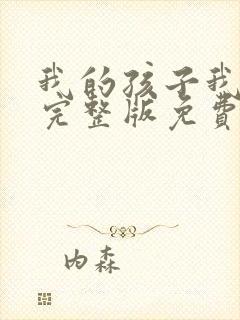 我的孩子我
完整版免費
内森